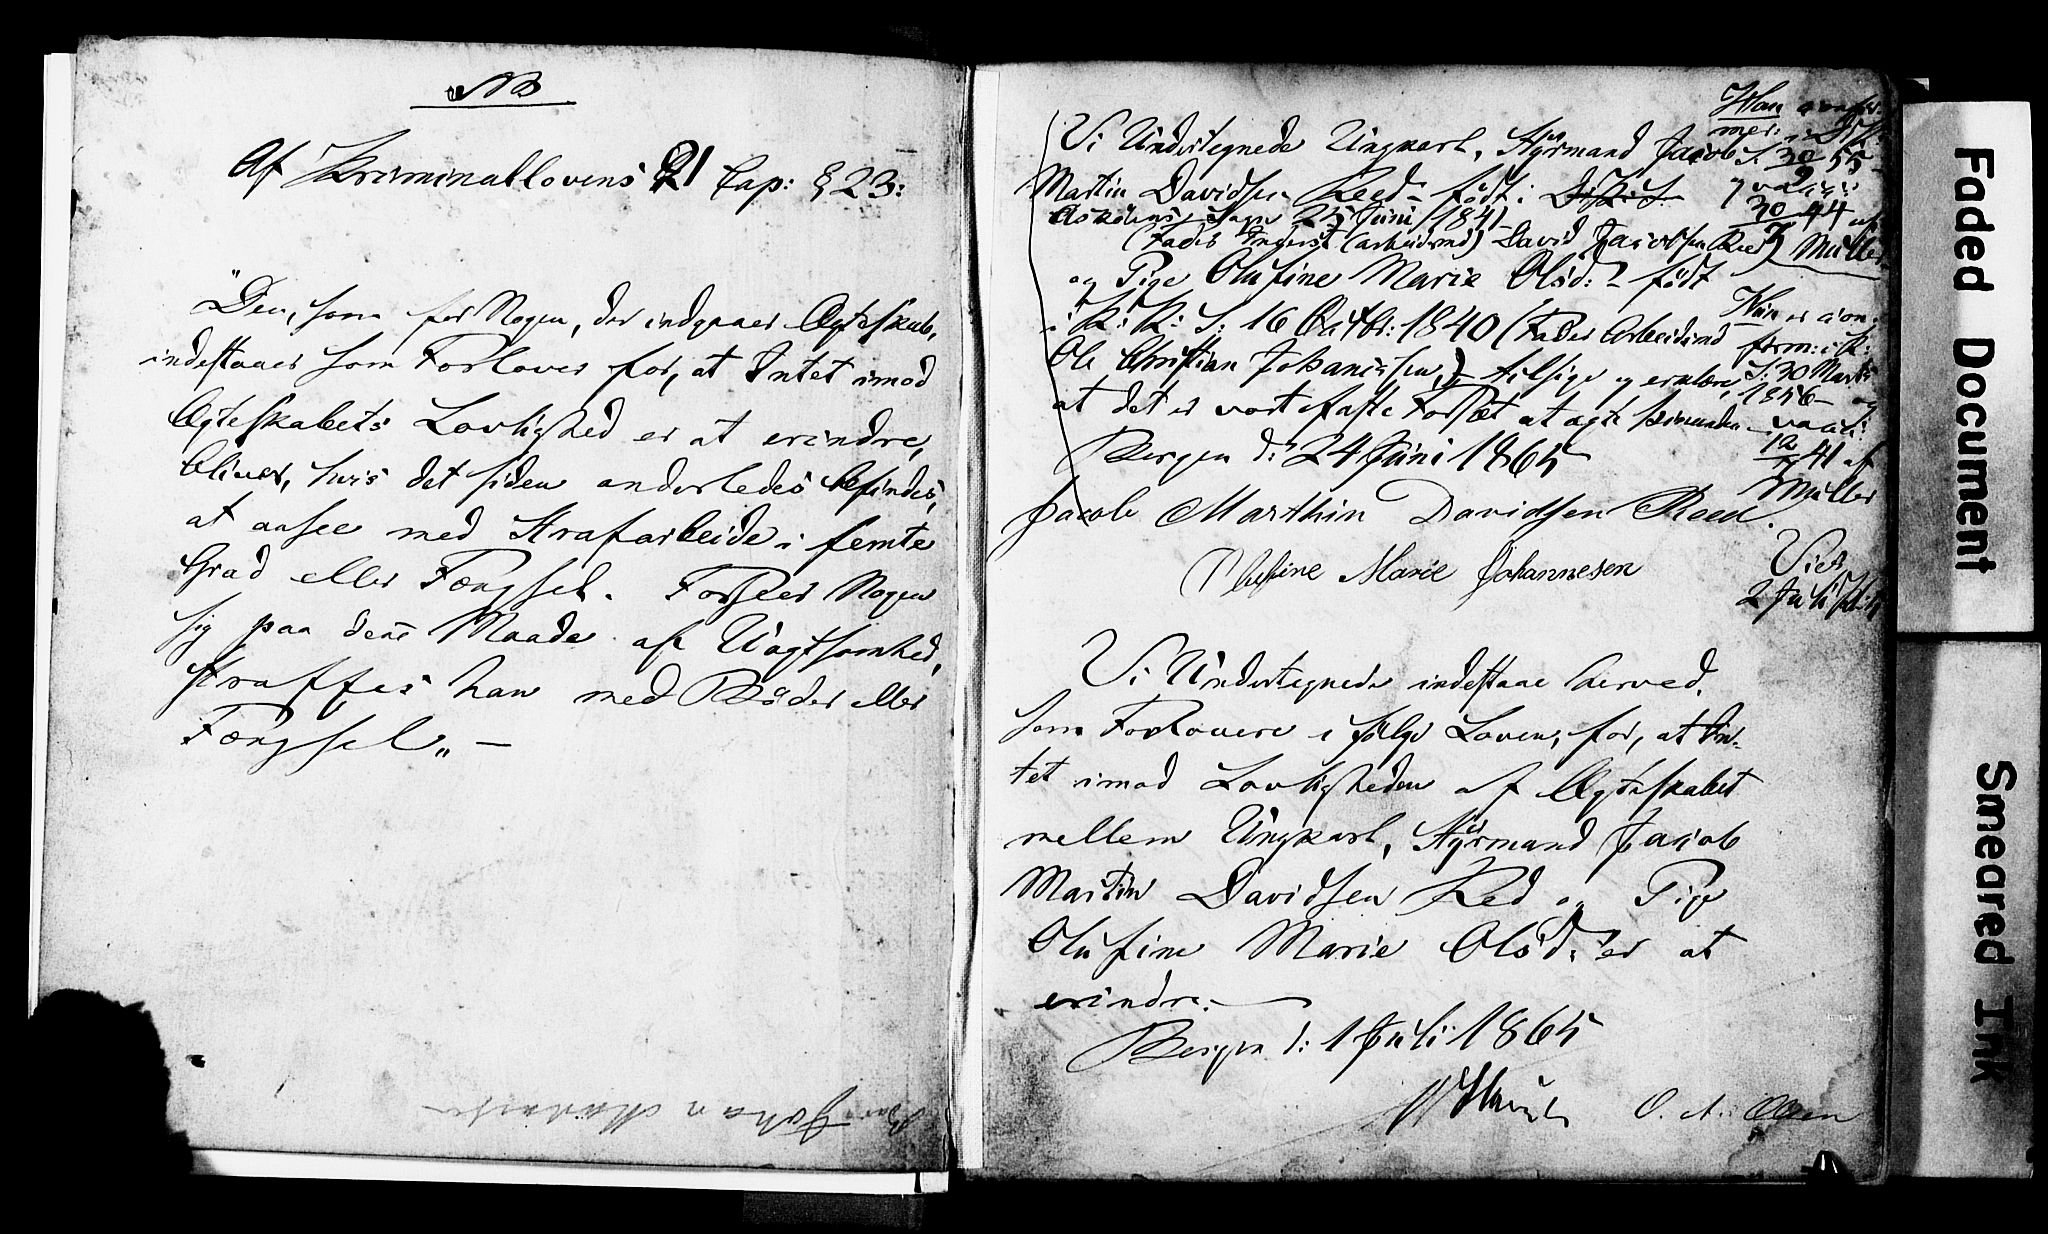 NB
Af Kriminallovens 21 Cap: § 23:
"Den, som for Nogen, der indgaaer Ægteskab,
indestaaer som Forlover for, at Intet imod
Ægteskabets Lovlighed er at erindre,
bliver, hvis det siden anderledes befindes,
at ansee med Strafarbeide i femte
Grad eller Fængsel. Forseer Nogen
sig paa denne Maade af Uagtsomhed,
straffes han med Bøder eller
Fængsel„ —
Johan
Vi Undertegnede Ungkarl, Styrmand Jacob
Martin Davidsen Reed – født i D: K: S.
Askøens Sogn 25 Juni 1841
(Fader Inderst (arbeidsmd) David Jacobsen Reed)
og Pige Olufine Marie Olsd: – født
i K: K: S: 16 Octbr: 1840 (Fader Arbeidsmd
Ole Christian Johannessen,) – tilsige og erklære,
at det er vort faste Forsæt at ægte hinanden
Bergen d: 24 Juni 1865
Jacob Marthin Davidsen Reed.
Olufine Marie Johannesen
Han confir
mer: i D: K:
S. 30/9 55
og vacc:
30/7 44 af
Müller
Hun er con-
firm: i K:
S: 30 Marts
1856 – og
vacc:
12/7 41 af
Müller
Viet
2 Juli
Vi Undertegnede indestaae herved,
som Forlovere i følge Loven, for, at In-
tet imod Lovligheden af Ægteskabet
mellem Ungkarl, Styrmand Jacob
Martin Davidsen Red og Pige
Olufine Marie Olsd: er at
erindre. —
Bergen d: 1 Juli 1865
O. A. Olsen
Faded Document
Smeared Ink